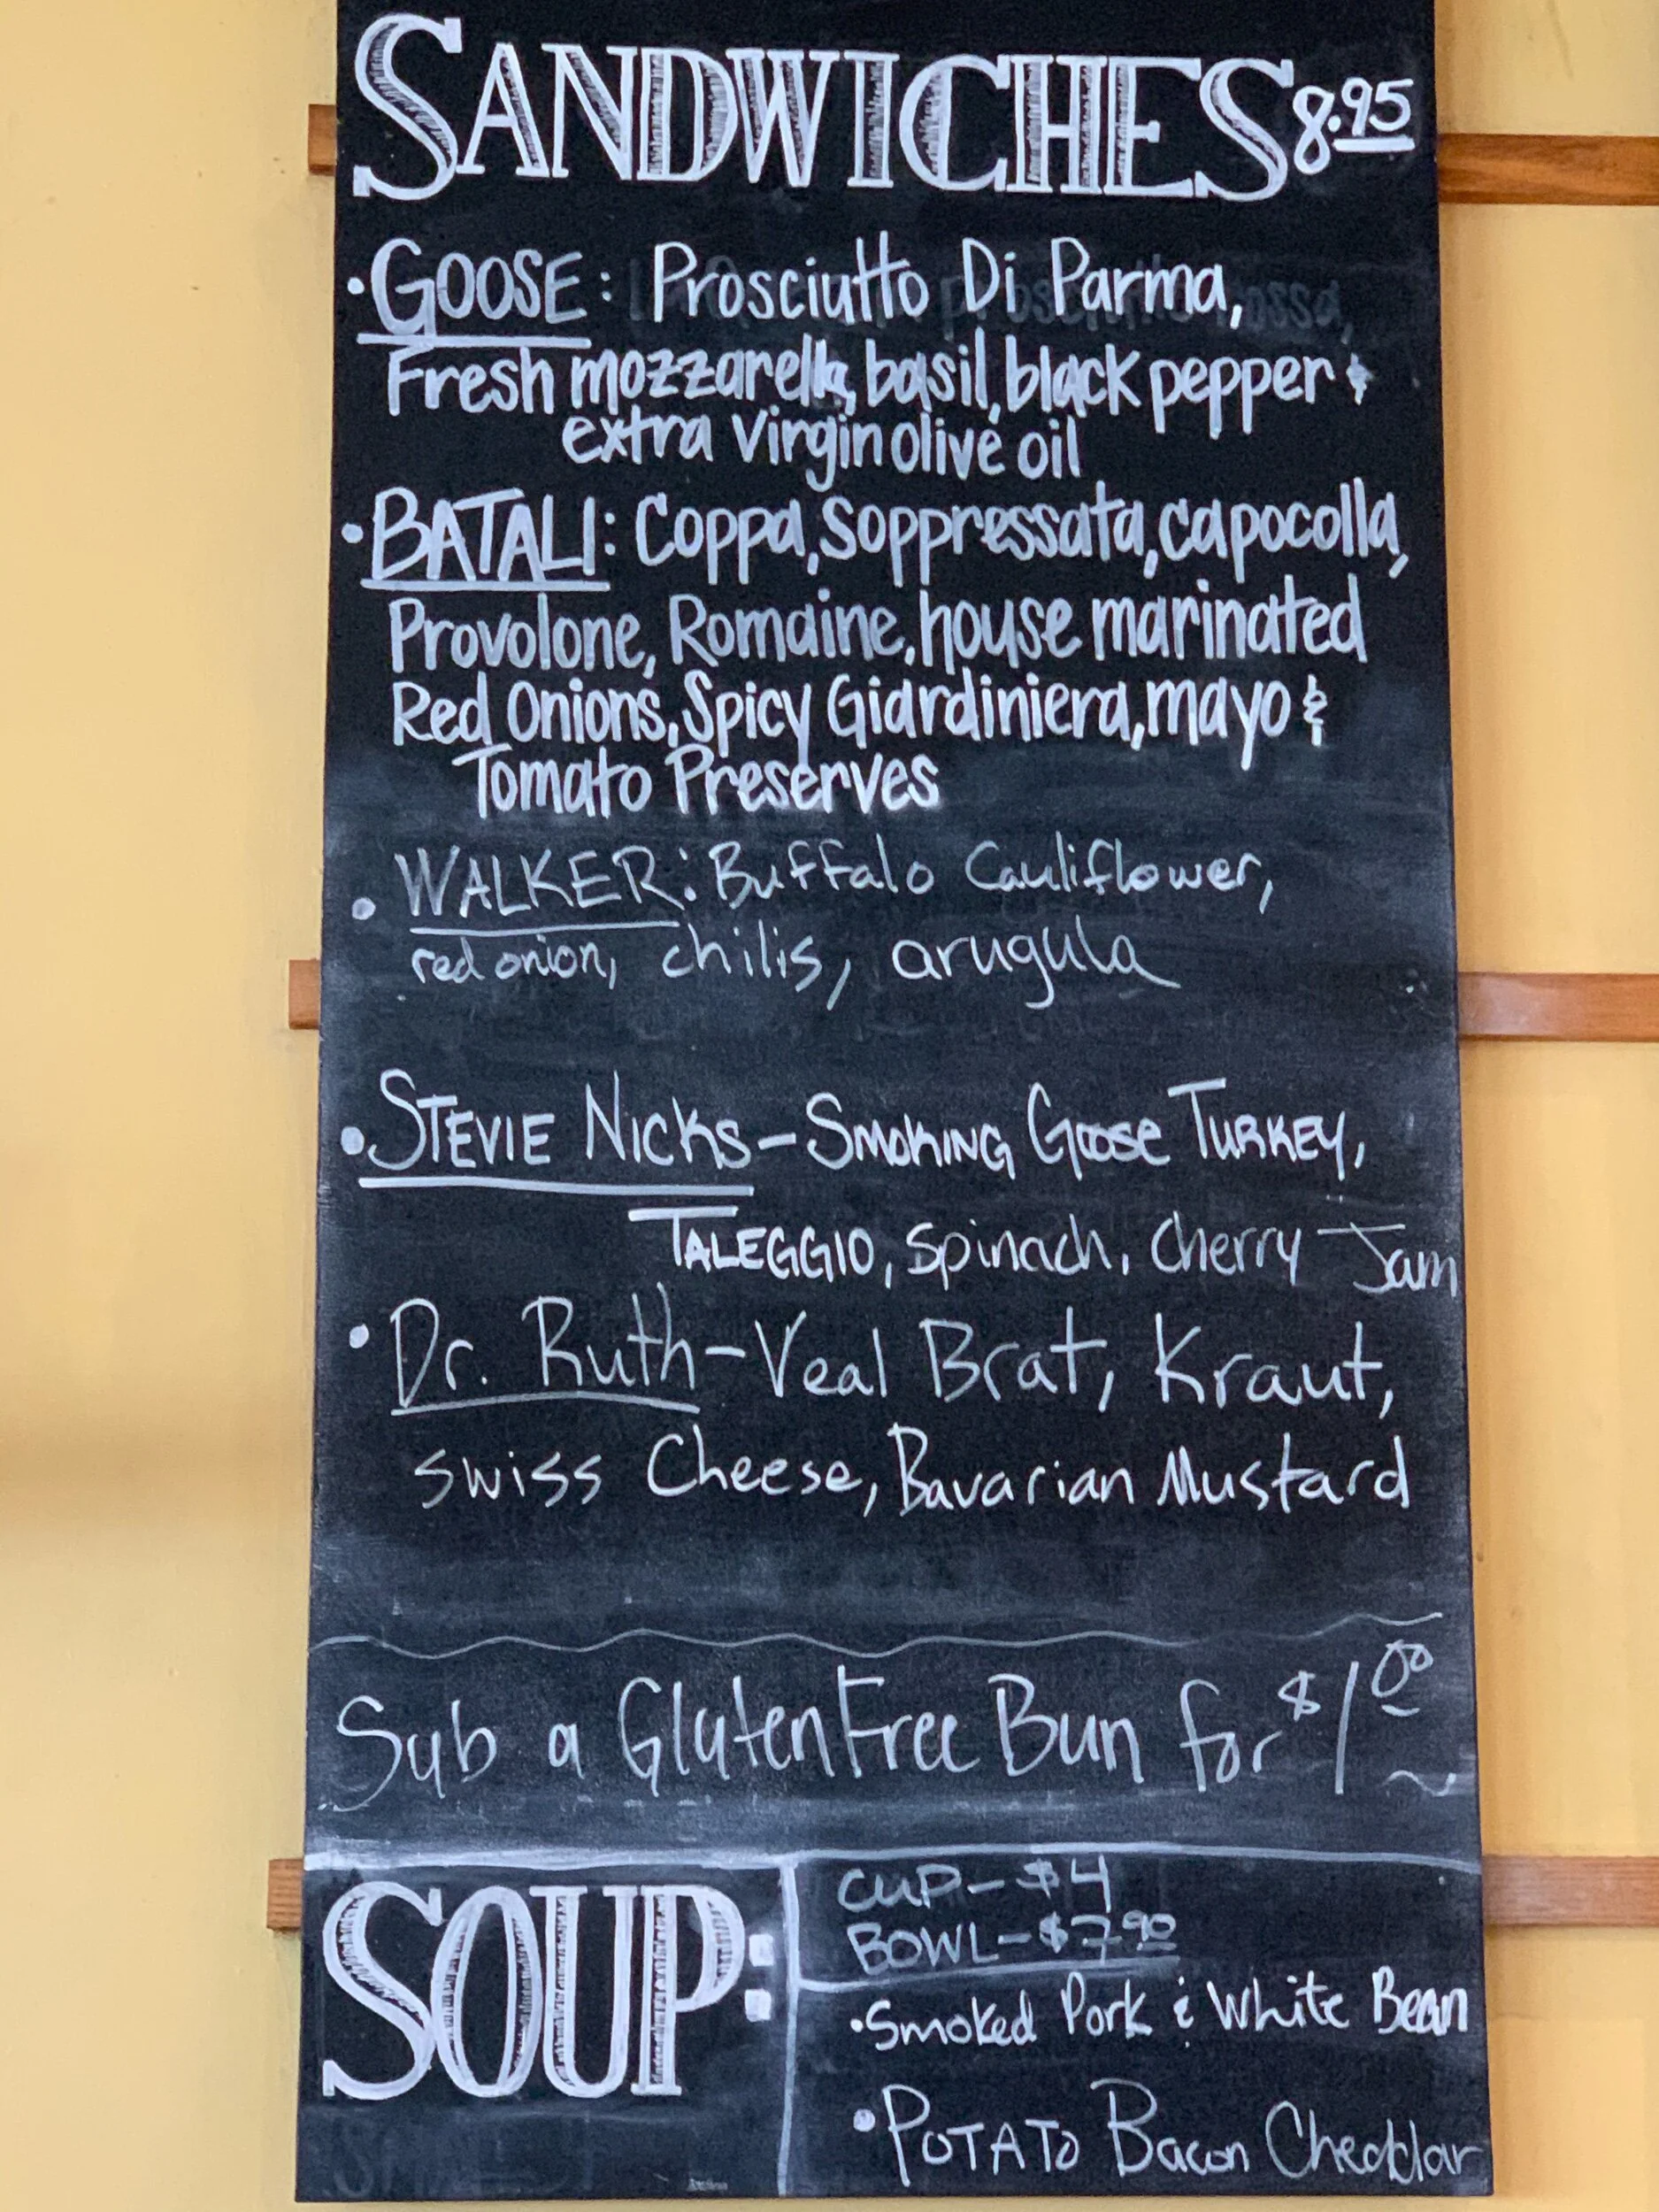 SANDWICHES 8.95
• GOOSE: Prosciutto Di Parma,
Fresh mozzarella, basil, black pepper &
extra Virgin olive oil
• BATALI: Coppa, Soppressata, capocolla,
Provolone, Romaine, house marinated
Red Onions, Spicy Giardiniera, mayo &
Tomato Preserves
• WALKER: Buffalo Cauliflower,
red onion, chilis, arugula
• STEVIE NICKS – SMOKING GOOSE TURKEY,
TALEGGIO, spinach, cherry Jam
• Dr. Ruth – Veal Brat, Kraut,
swiss Cheese, Bavarian Mustard
Sub a Gluten Free Bun for $1.00
SOUP:
CUP – $4
BOWL – $7.90
• Smoked Pork & White Bean
• POTATO Bacon Cheddar